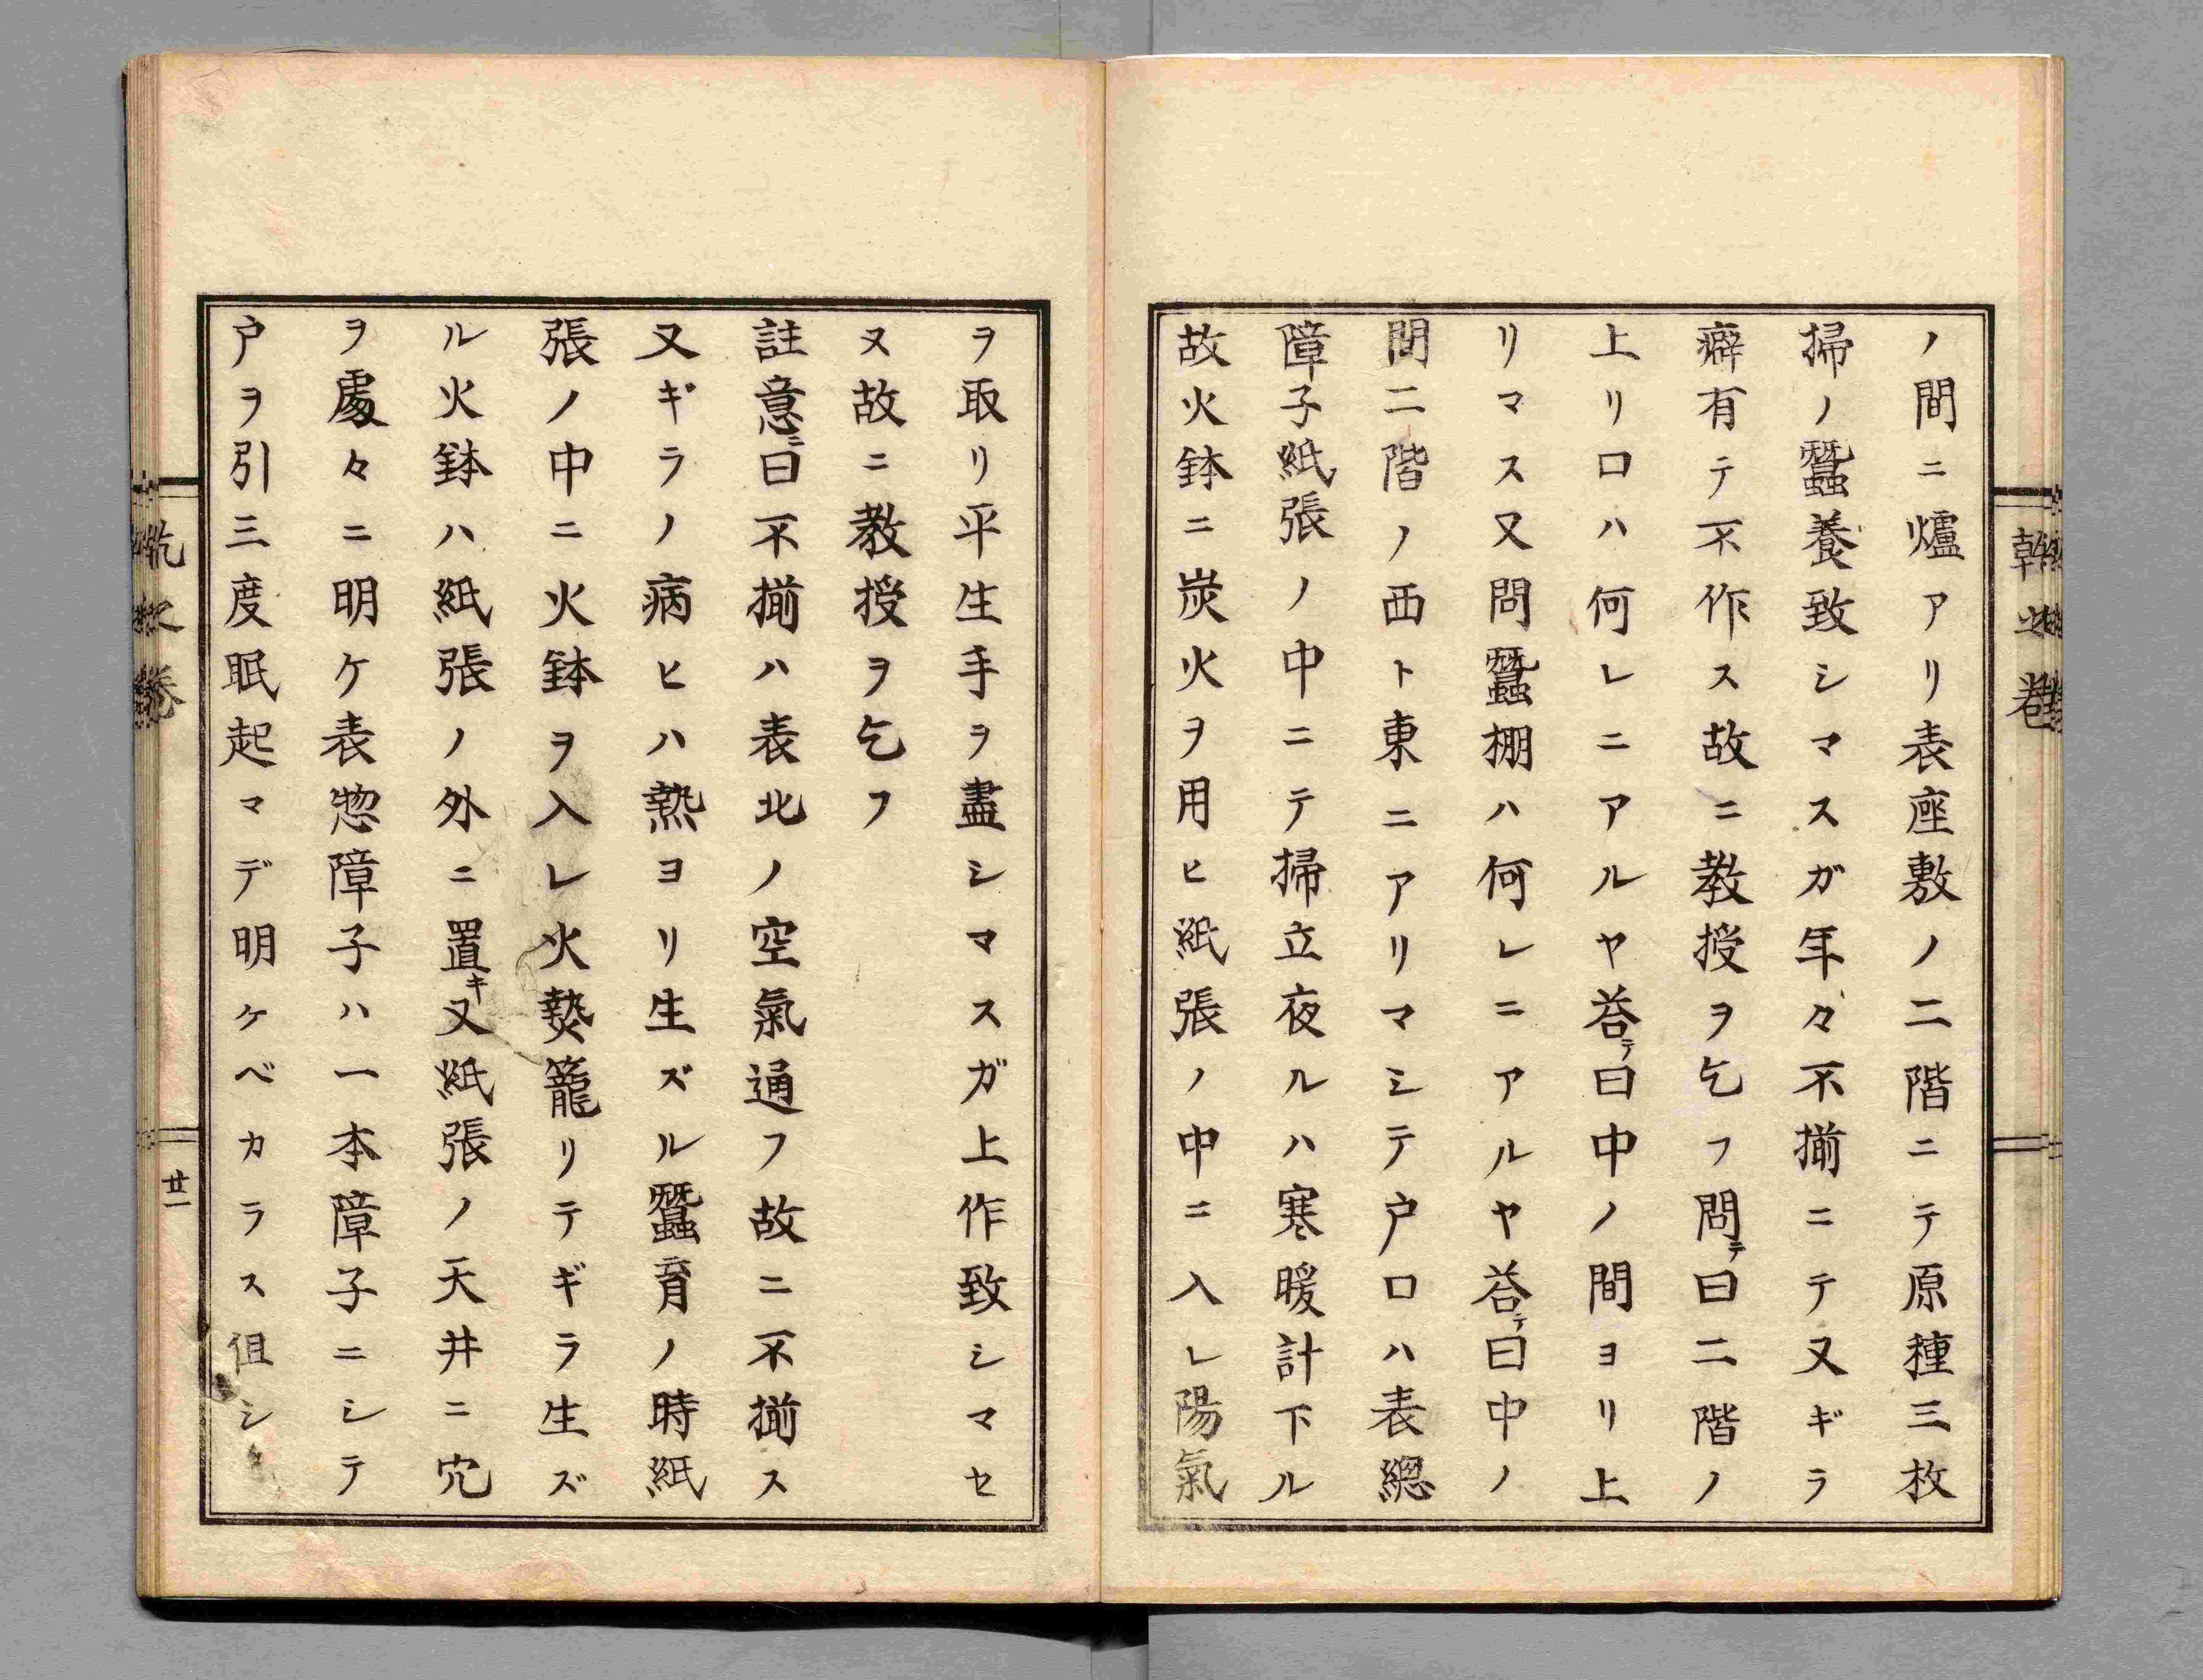 ノ間ニ爐アリ表座敷ノ二階ニテ原種三枚
掃ノ蠶養致シマスガ年々不揃ニテ又ギラ
癖有テ不作ス故ニ教授ヲ乞フ問テ曰二階ノ
上リ口ハ何レニアルヤ荅テ曰中ノ間ヨリ上
リマス又問蠶棚ハ何レニアルヤ荅テ曰中ノ
間二階ノ西ト東ニアリマシテ戸口ハ表總
障子紙張ノ中ニテ掃立夜ルハ寒暖計下ル
故火鉢ニ炭火ヲ用ヒ紙張ノ中ニ入レ陽氣
ヲ取リ平生手ヲ盡シマスガ上作致シマセ
ヌ故ニ教授ヲ乞フ
註意ニ曰不揃ハ表北ノ空氣通フ故ニ不揃ス
又ギラノ病ヒハ熱ヨリ生ズル蠶育ノ時紙
張ノ中ニ火鉢ヲ入レ火㷱籠リテギラ生ズ
ル火鉢ハ紙張ノ外ニ置キ又紙張ノ天井ニ穴
ヲ處々ニ明ケ表惣障子ハ一本障子ニシテ
戸ヲ引三度眠起マデ明ケベカラス伹シ
乾之巻
廿一